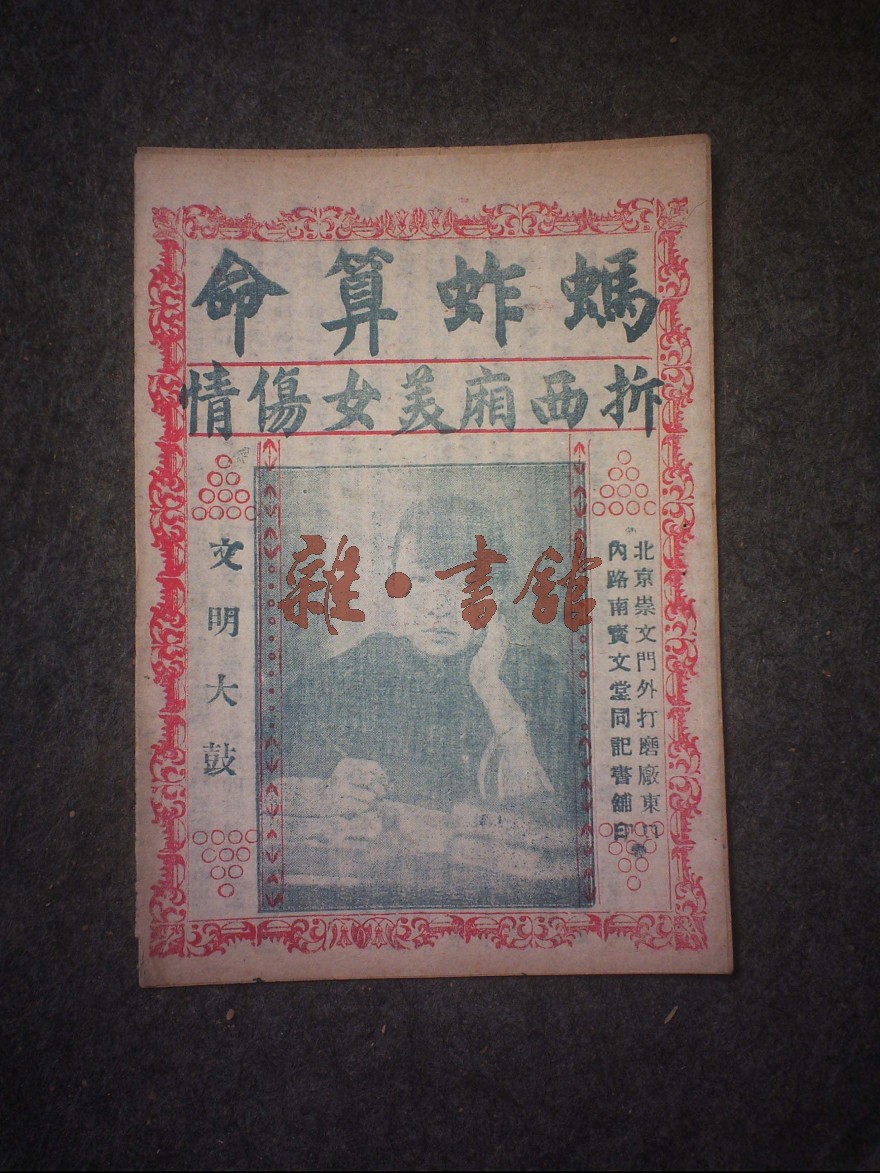 螞蚱算命
折西廂美女傷情
北京崇文門外打磨廠東口
內路南寳文堂同記書舖印
文明大鼓
雜·書館